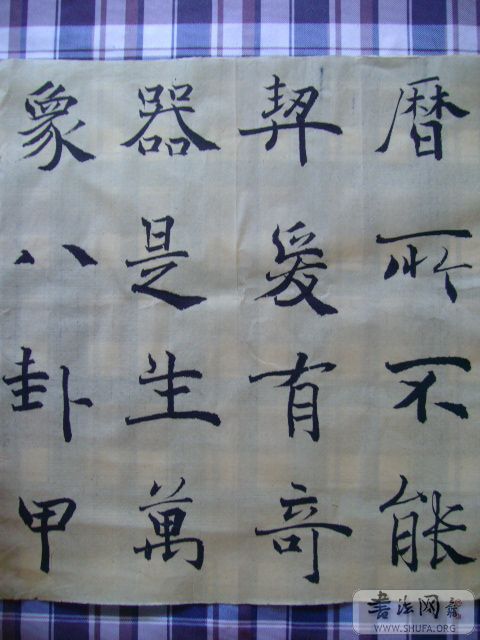 暦所不能
契爰有奇
器是生萬
象八卦甲
書法网
WWW.SHUFA.ORG